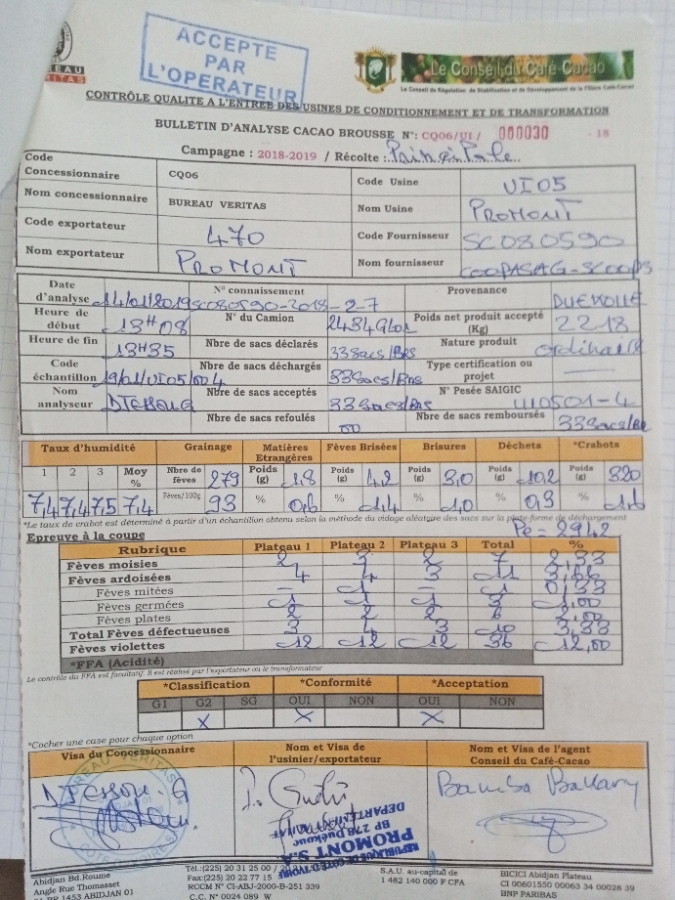 ACCEPTE
PAR
L'OPERATEUR
EAU
ITAS
Le Conseil du Café-Cacao
Le Conseil de Régulation, de Stabilisation et de Développement de la Filière Café-Cacao
CONTRÔLE QUALITE A L'ENTREE DES USINES DE CONDITIONNEMENT ET DE TRANSFORMATION
BULLETIN D'ANALYSE CACAO BROUSSE N°: CQ06/UI/ 000030 - 18
Campagne : 2018-2019 / Récolte :
Code Concessionnaire CQ06 Code Usine UI05
Nom concessionnaire BUREAU VERITAS Nom Usine PROMONT
Code exportateur 470 Code Fournisseur SC080590
Nom exportateur PROMONT Nom fournisseur COOPASAG-SCOOPS
Date d'analyse 14/01/2019 N° connaissement SC080590-2018-2-7 Provenance DUEKOUE
Heure de début 13H08 N° du Camion Poids net produit accepté (Kg) 2218
Heure de fin 13H35 Nbre de sacs déclarés 33Sacs/Brs Nature produit
Code échantillon 19/01/UI05/004 Nbre de sacs déchargés 33Sacs/Brs Type certification ou projet —
Nom analyseur Nbre de sacs acceptés 33Sacs/Brs N° Pesée SAIGIC UI0501-4
Nbre de sacs refoulés 00 Nbre de sacs remboursés 33Sacs/Br
Taux d'humidité Grainage Matières Etrangères Fèves Brisées Brisures Déchets *Crabots
1 2 3 Moy % Nbre de fèves 279 Poids (g) 1,8 Poids (g) 4,2 Poids (g) 3,0 Poids (g) Poids (g) 320
7,4 7,4 7,5 7,4 Fèves/100g 93 % 0,6 % 1,4 % 1,0 % 0,3 % 1,6
*Le taux de crabot est déterminé à partir d'un échantillon obtenu selon la méthode du vidage aléatoire des sacs sur la plate-forme de déchargement
Pe = 2942
Epreuve à la coupe
Rubrique Plateau 1 Plateau 2 Plateau 3 Total %
Fèves moisies 2 3 2 7 2,33
Fèves ardoisées 4 4 3 11 3,66
Fèves mitées - 1 - 1 0,33
Fèves germées 1 1 1 3 1,00
Fèves plates 2 2 2 6
Total Fèves défectueuses 3 4 3 10 3,33
Fèves violettes 12 12 12 36 12,00
*FFA (Acidité)
Le contrôle du FFA est facultatif. Il est réalisé par l'exportateur ou le transformateur
*Classification *Conformité *Acceptation
G1 G2 SG OUI NON OUI NON
X X X
*Cocher une case pour chaque option
Visa du Concessionnaire Nom et Visa de l'usinier/exportateur Nom et Visa de l'agent Conseil du Café-Cacao
BUREAU VERITAS
Bamba Bakary
REPUBLIQUE DE COTE D'IVOIRE
PROMONT S.A.
BP 278 Duékoué
DEPARTEMENT
Abidjan Bd.Roume
Angle Rue Thomasset
BP 1453 ABIDJAN 01
Tél.:(225) 20 31 25 00
Fax:(225) 20 22 77 15
RCCM N° CI-ABJ-2000-B-251 339
C.C. N° 0024 089 W
S.A.U. au-capital de
1 482 140 000 F CFA
BICICI Abidjan Plateau
CI 00601550 00063 34 00028 39
BNP PARIBAS